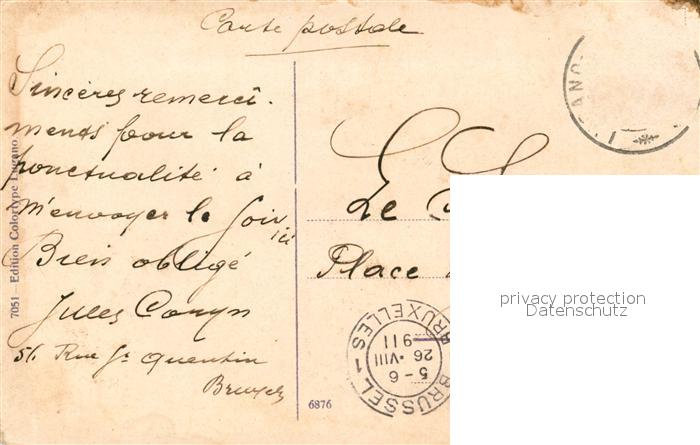 Carte postale
Sincères remercî-
ments pour la
ponctualité à
m'envoyer le Soir
ici
Bien obligé
Jules
51 Rue St Quentin
Bruxelles
7051 - Edition Colortype Lugano
Le
Place
6876
BRUXELLES 1
5-6
26·VIII
911
BRUSSEL
ANO
1
privacy protection
Datenschutz